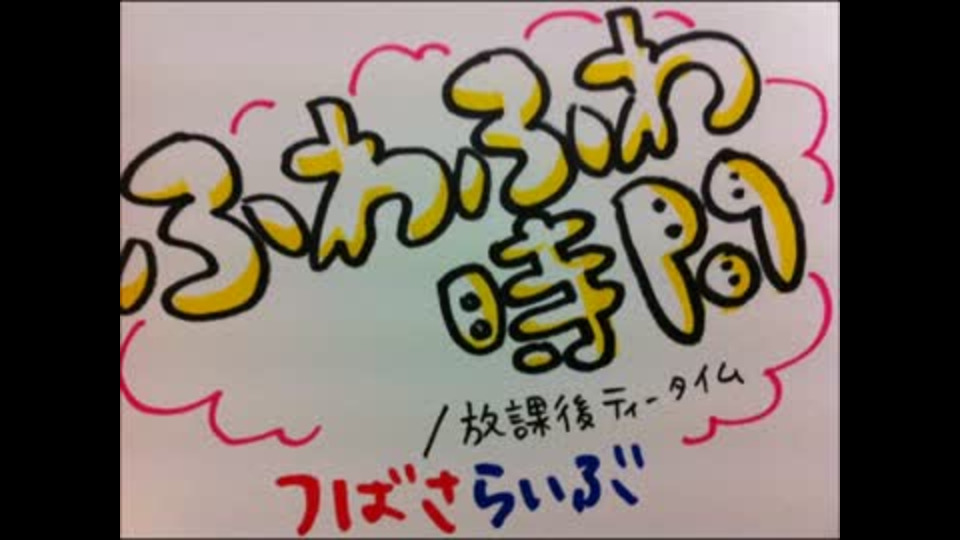 ふわふわ
時間
/放課後ティータイム
つばさらいぶ